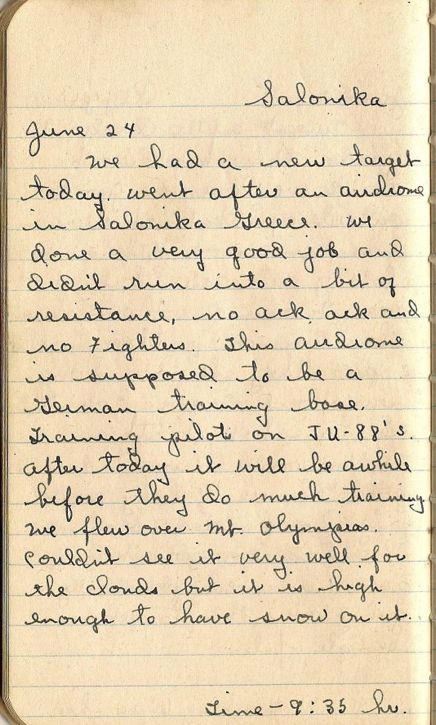 Salonika
June 24
We had a new target
today. Went after an airdrome
in Salonika Greece. We
done a very good job and
didn't run into a bit of
resistance, no ack ack and
no Fighters. This airdrome
is supposed to be a
German training base.
Training pilot on JU-88's.
After today it will be awhile
before they do much training
We flew over Mt. Olympias.
Couldn't see it very well for
the clouds but it is high
enough to have snow on it.
Time - 9:35 hr.